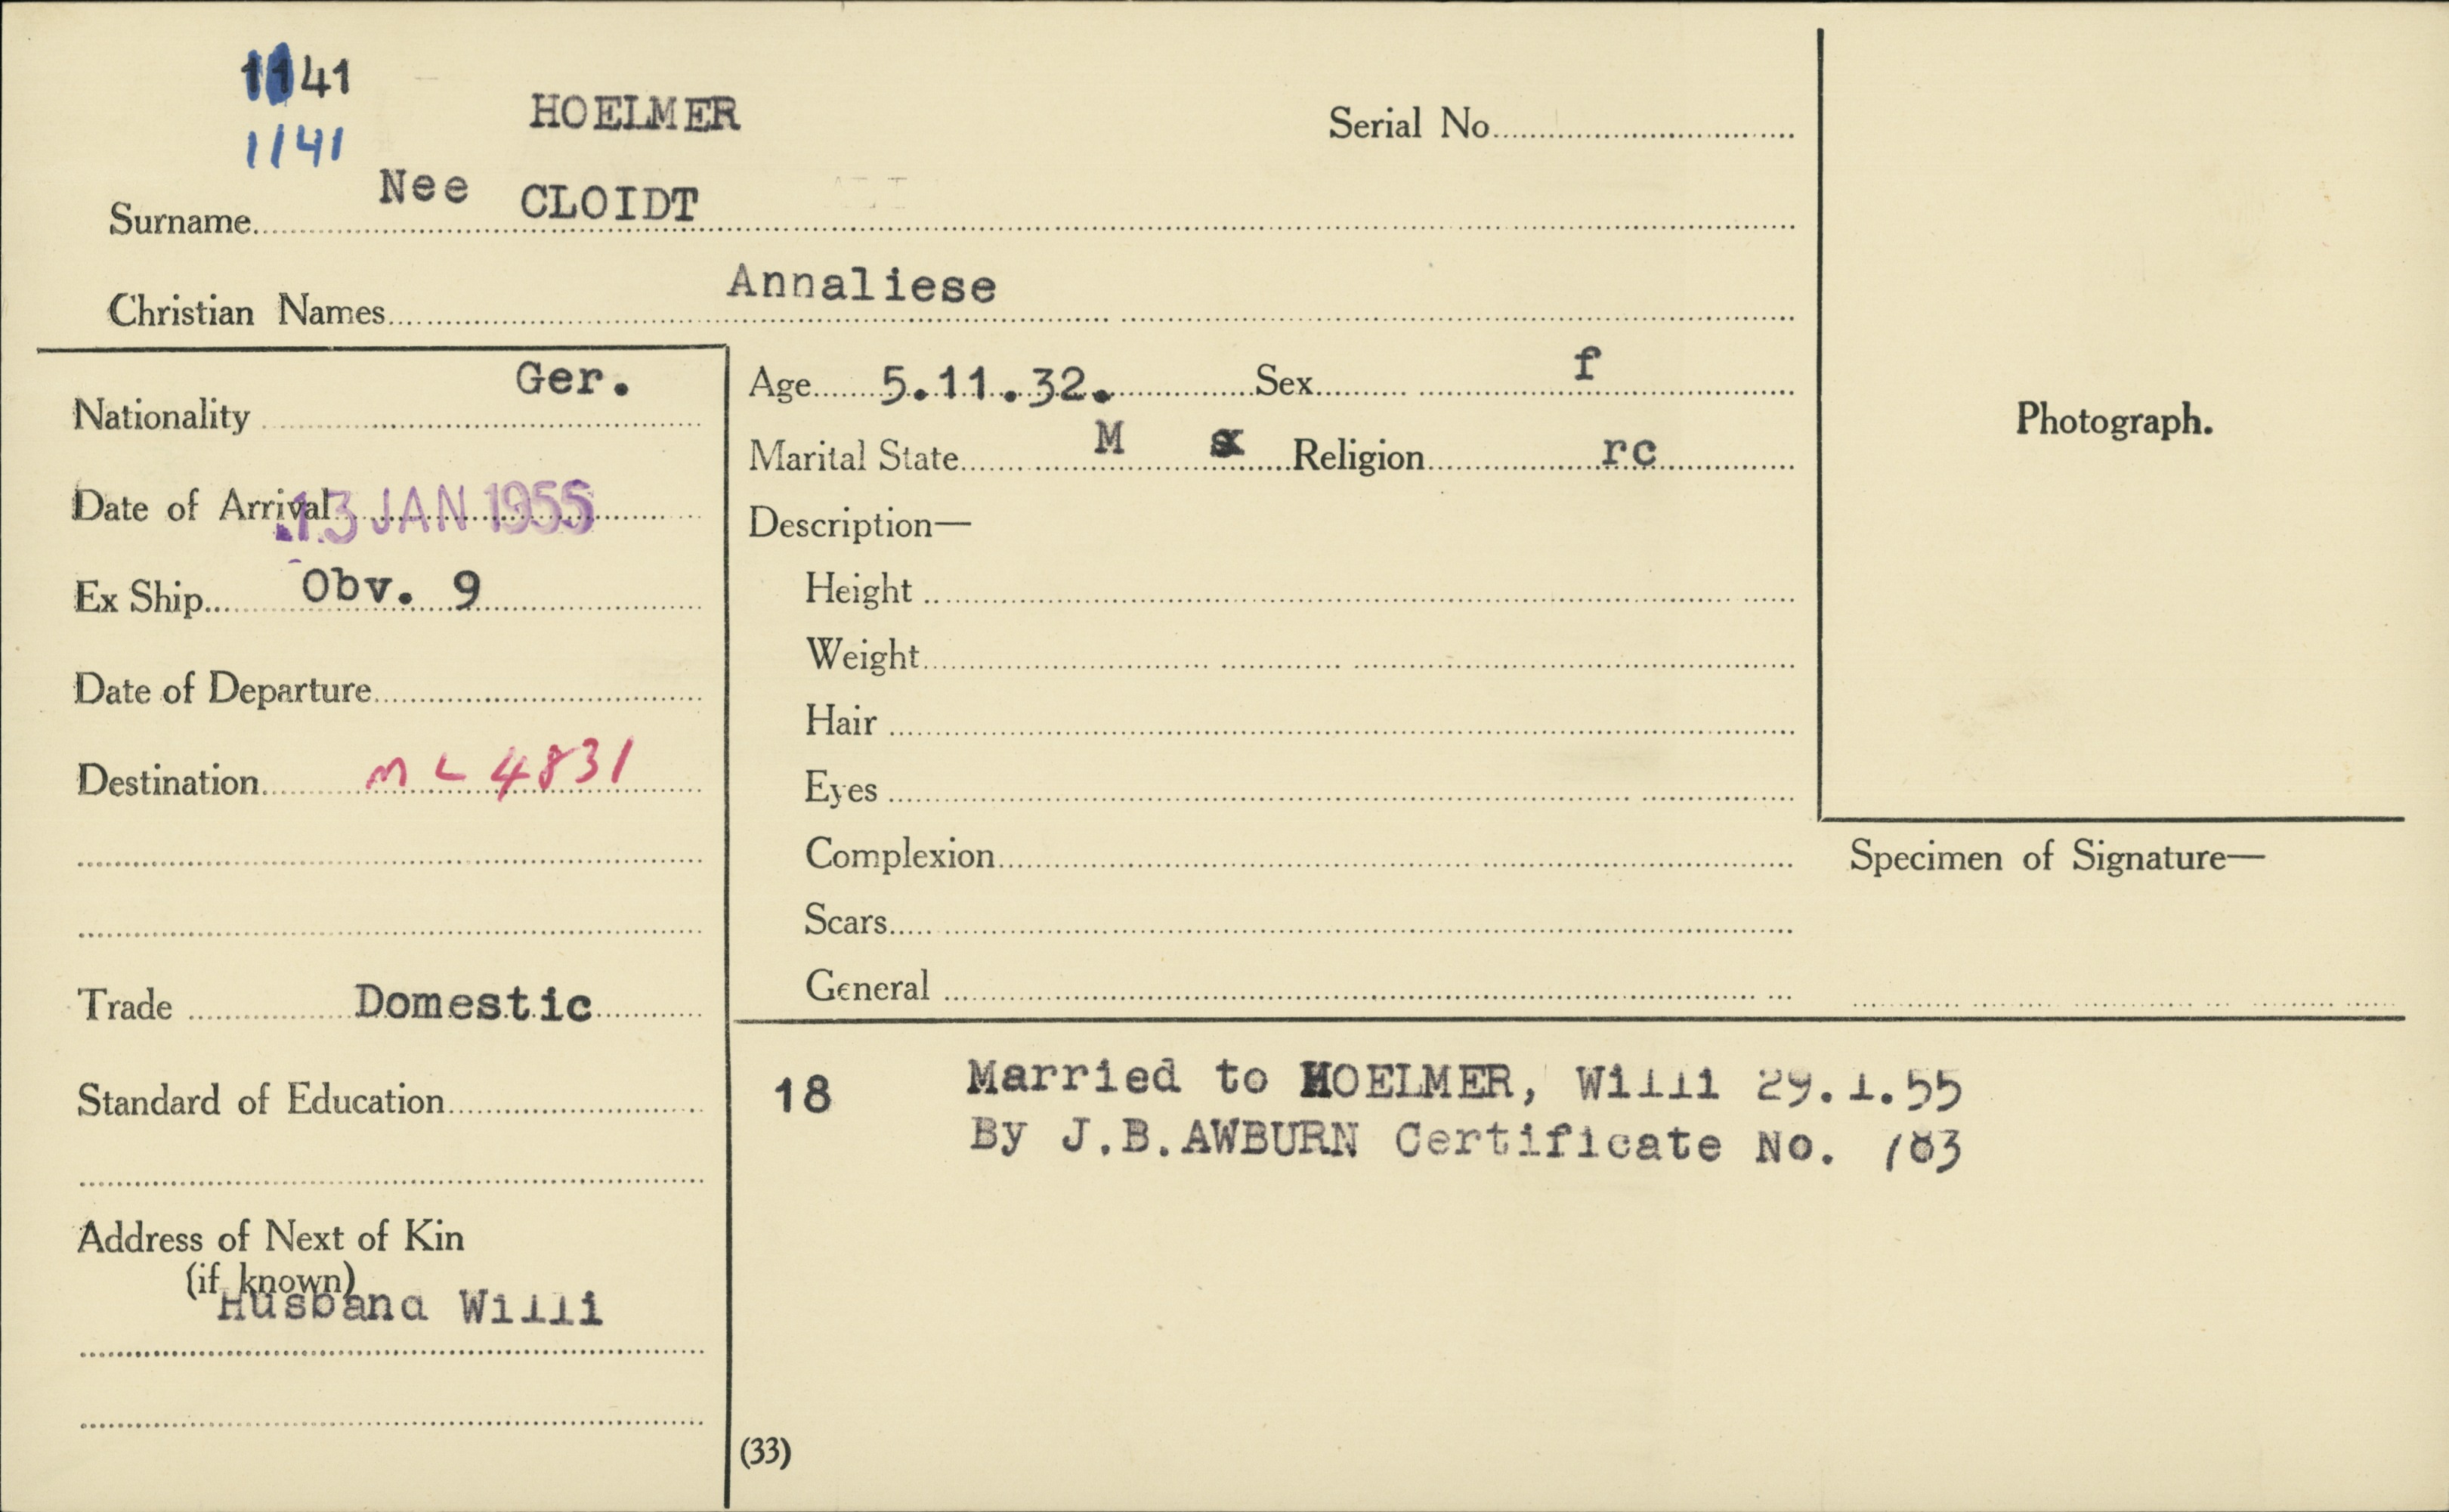 1141
1141
HOELMER
Serial No.
Nee CLOIDT
Surname
Annaliese
Christian Names
Nationality Ger.
Date of Arrival 13 JAN 1955
Ex Ship Obv. 9
Date of Departure
Destination ML 4831
Trade Domestic
Standard of Education
Address of Next of Kin
(if known)
Husband Willi
Age 5.11.32. Sex f
Marital State M Religion rc
Description—
Height
Weight
Hair
Eyes
Complexion
Scars
General
Photograph.
Specimen of Signature—
18 Married to HOELMER, Willi 29.1.55
By J.B.AWBURN Certificate No. 183
(33)